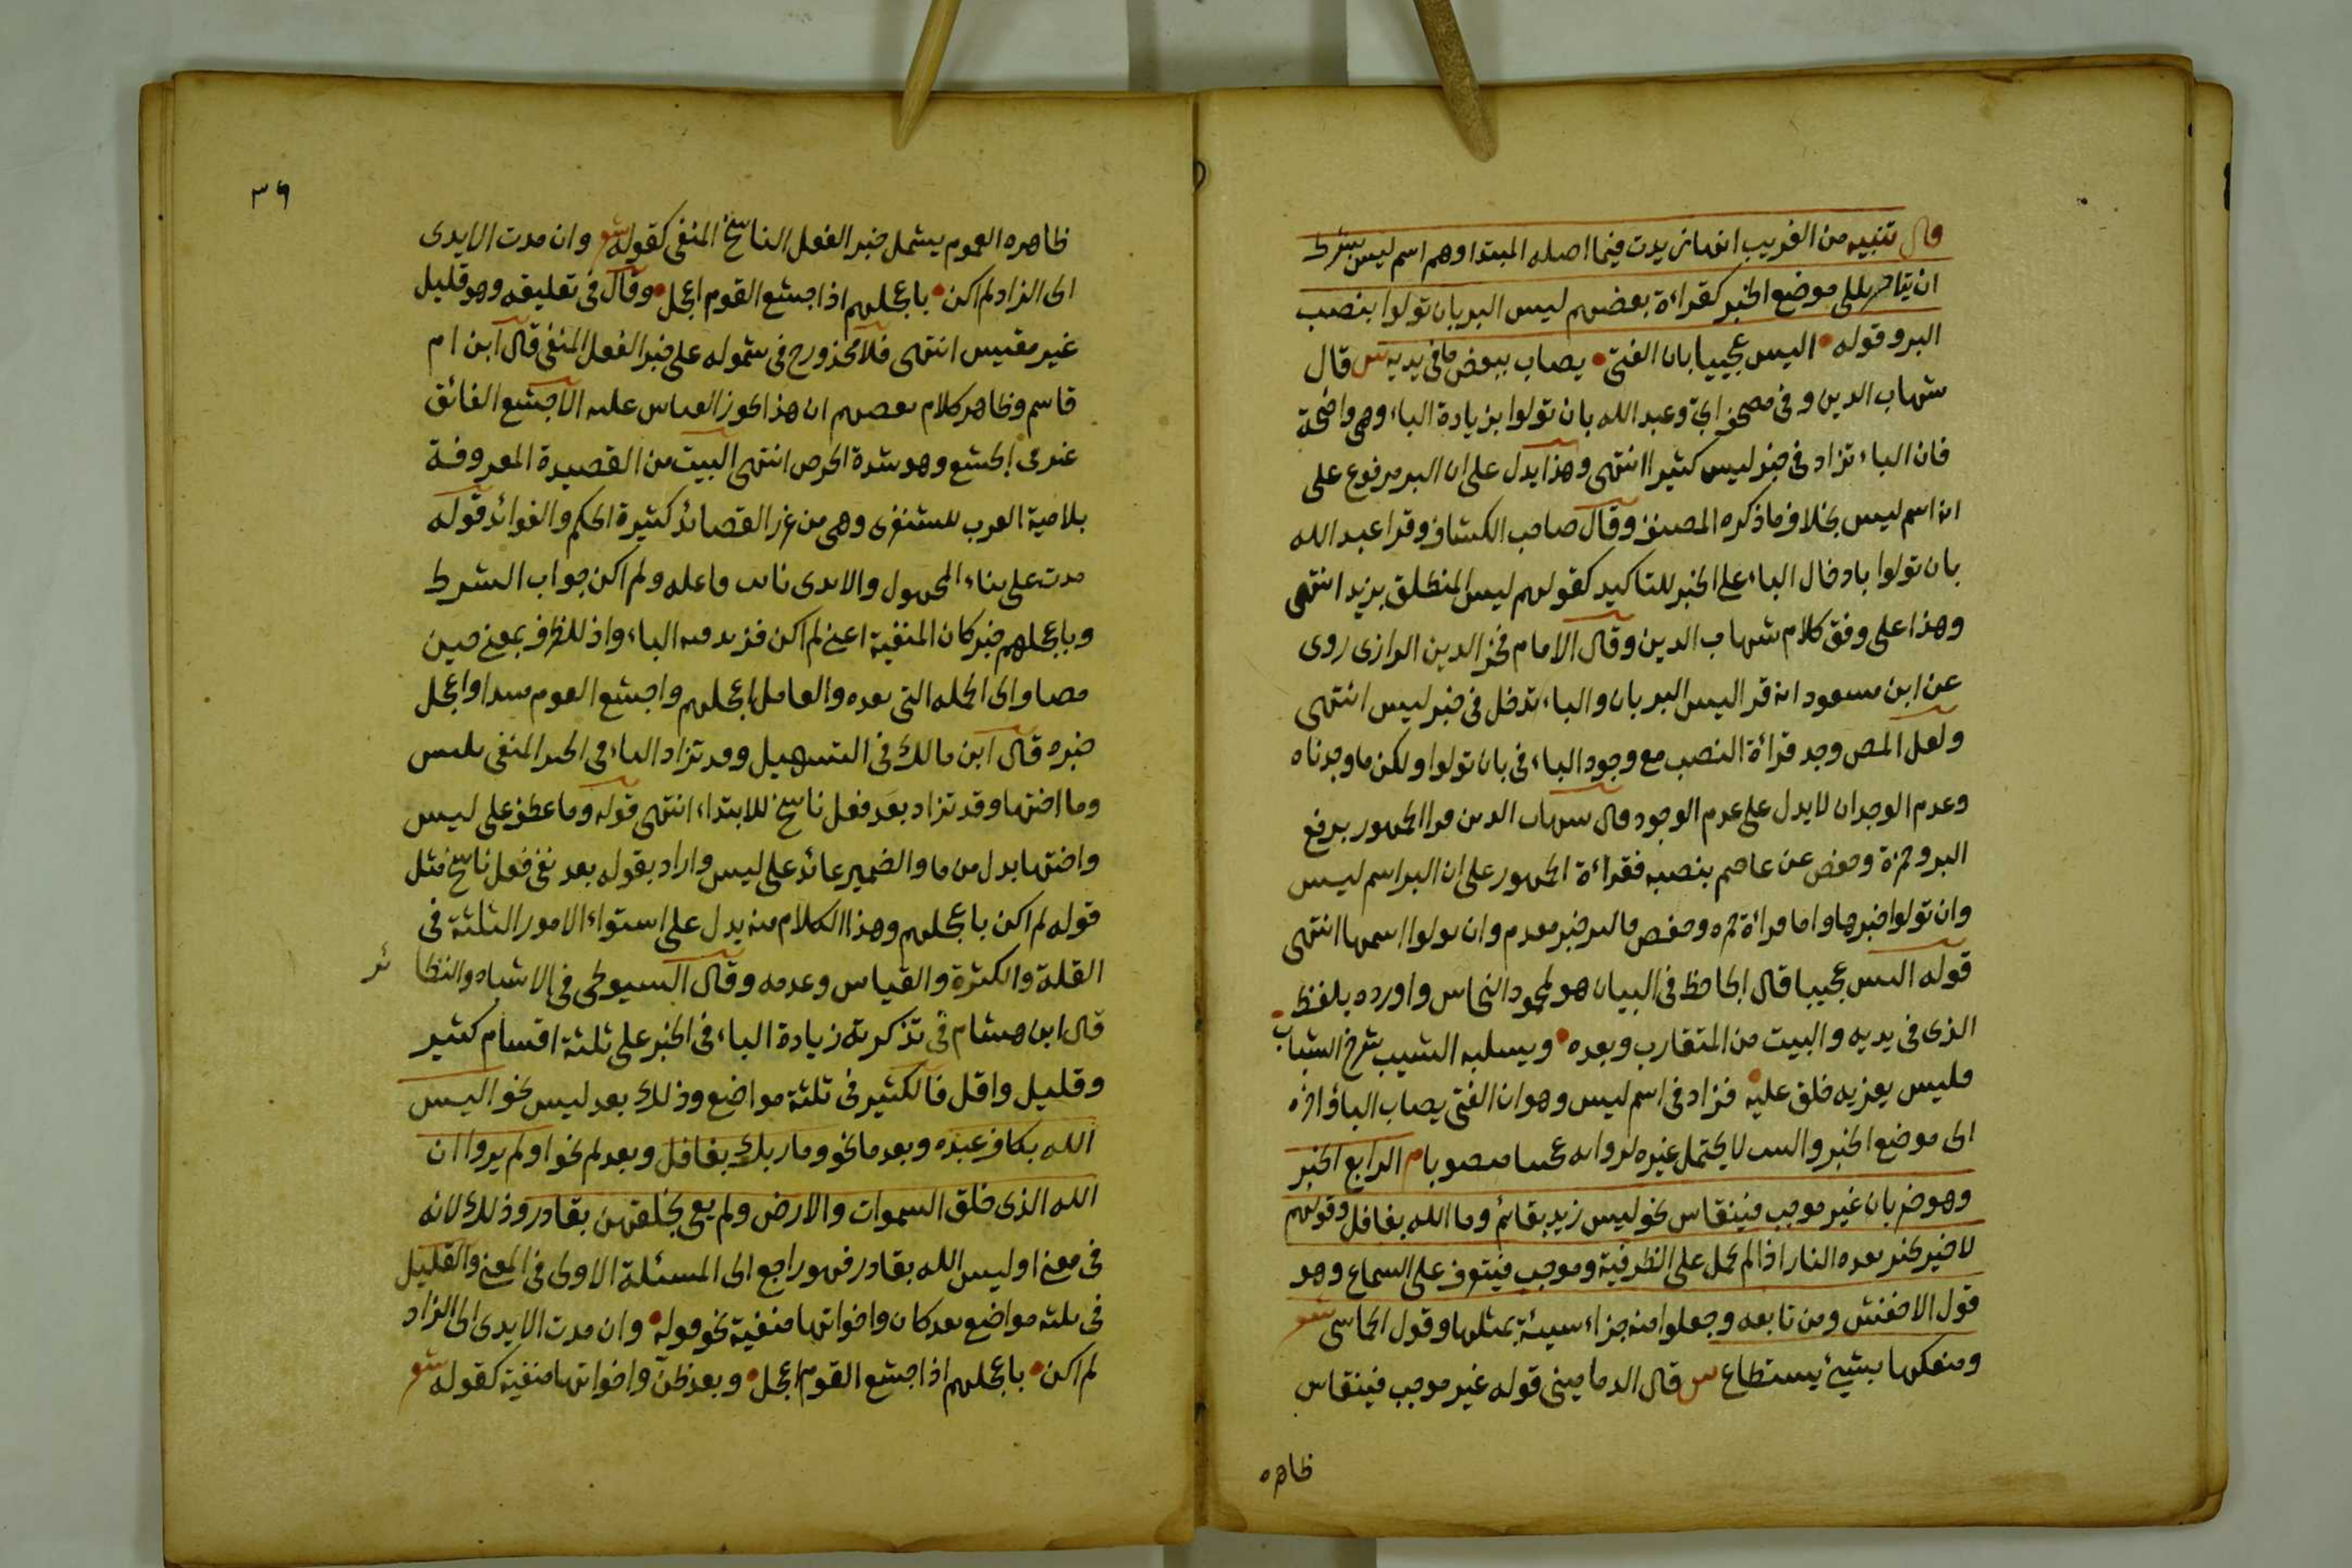 قال تنبيه من الغريب انها زيدت فيما اصله المبتدا وهم اسم ليس بشرط
ان يتاخر الى موضع الخبر كقراءة بعضهم ليس البر بان تولوا بنصب
البر وقوله اليس عجيبا بان الفتى يصاب ببعض ما فى يديه س قال
شهاب الدين و فى مصحف ابي وعبد الله بان تولوا بزيادة الباء وهى واضحة
فان الباء تزاد فى خبر ليس كثيرا انتهى وهذا يدل على ان البر مرفوع على
انه اسم ليس بخلاف ما ذكره المصنف وقال صاحب الكشاف وقرا عبد الله
بان تولوا بادخال الباء على الخبر للتاكيد كقولهم ليس المنطلق بزيد انتهى
وهذا على وفق كلام شهاب الدين وقال الامام فخر الدين الرازى روى
عن ابن مسعود انه قرا ليس البر بان والباء تدخل فى خبر ليس انتهى
ولعل المص وجد قرائة النصب مع وجود الباء فى بان تولوا ولكن ما وجدناه
وعدم الوجدان لا يدل على عدم الوجود قال شهاب الدين قرا الجمهور برفع
البر وحمزة وحفص عن عاصم بنصبه فقراءة الجمهور على ان البر اسم ليس
وان تولوا خبرها واما قرائة حمزه وحفص فالبر خبر مقدم وان تولوا اسمها انتهى
قوله اليس عجيبا قال الجاحظ فى البيان هو لمحمود النحاس واورده بلفظ
الذى فى يديه والبيت من المتقارب وبعده ويسلبه الشيب شرخ الشباب
فليس يعزيه خلق عليه فزاد فى اسم ليس وهو ان الفتى يصاب الباء واخره
الى موضع الخبر والبيت لا يحتمل غيره لروايه عجيبا منصوبا م الرابع الخبر
وهو ضربان غير موجب فينقاس نحو ليس زيد بقائم وما الله بغافل وقولهم
لا خير بخير بعده النار اذا لم تحمل على الظرفية وموجب فيتوقف على السماع وهو
قول الاخفش ومن تابعه وجعلوا منه جزاء سيئة بمثلها وقول الحماسى شعر
ومنعكها بشيئ يستطاع س قال الدمامينى قوله غير موجب فينقاس
ظاهره
٣٦
ظاهره العموم يشمل خبر الفعل الناسخ المنفى كقوله شعر وان مدت الايدى
الى الزاد لم اكن باعجلهم اذا اجشع القوم اعجل وقال فى تعليقه وهو قليل
غير مقيس انتهى فلا محذورح فى شموله على خبر الفعل المنفى قال ابن ام
قاسم وظاهر كلام بعضهم ان هذا يجوز القياس عليه الاجشع الفائق
غيره فى الجشع وهو شدة الحرص انتهى البيت من القصيدة المعروفة
بلامية العرب للشنفرى وهى من غرر القصائد كثيرة الحكم والفوائد قوله
مدت على بناء المجهول والايدى نائب فاعله ولم اكن جواب الشرط
وباعجلهم خبر كان المنفية اعنى لم اكن فزيد فيه الباء واذ للظرف بمعنى حين
مضاف الى الجمله التى بعده والعامل باعجلهم واجشع القوم مبتدا واعجل
خبره قال ابن مالك فى التسهيل وقد تزاد الباء فى الخبر المنفى بليس
وما اختها وقد تزاد بعد فعل ناسخ للابتداء انتهى قوله وما عطف على ليس
واختها بدل من ما والضمير عائد على ليس واراد بقوله بعد نفى فعل ناسخ مثل
قوله لم اكن باعجلهم وهذا الكلام منه يدل على استواء الامور الثلثة فى
القلة والكثرة والقياس وعدمه وقال السيوطى فى الاشباه والنظائر
قال ابن هشام فى تذكرته زيادة الباء فى الخبر على ثلثة اقسام كثير
وقليل واقل فالكثير فى ثلثة مواضع وذلك بعد ليس نحو اليس
الله بكاف عبده وبعد ما نحو وما ربك بغافل وبعد لم نحو اولم يروا ان
الله الذى خلق السموات والارض ولم يعى بخلقهن بقادر وذلك لانه
فى معنى اوليس الله بقادر فهو راجع الى المسئلة الاولى فى المعنى والقليل
فى ثلثه مواضع بعد كان واخواتها منفية نحو قوله وان مدت الايدى الى الزاد
لم اكن باعجلهم اذا اجشع القوم اعجل وبعد ظن واخواتها منفية كقوله شعر